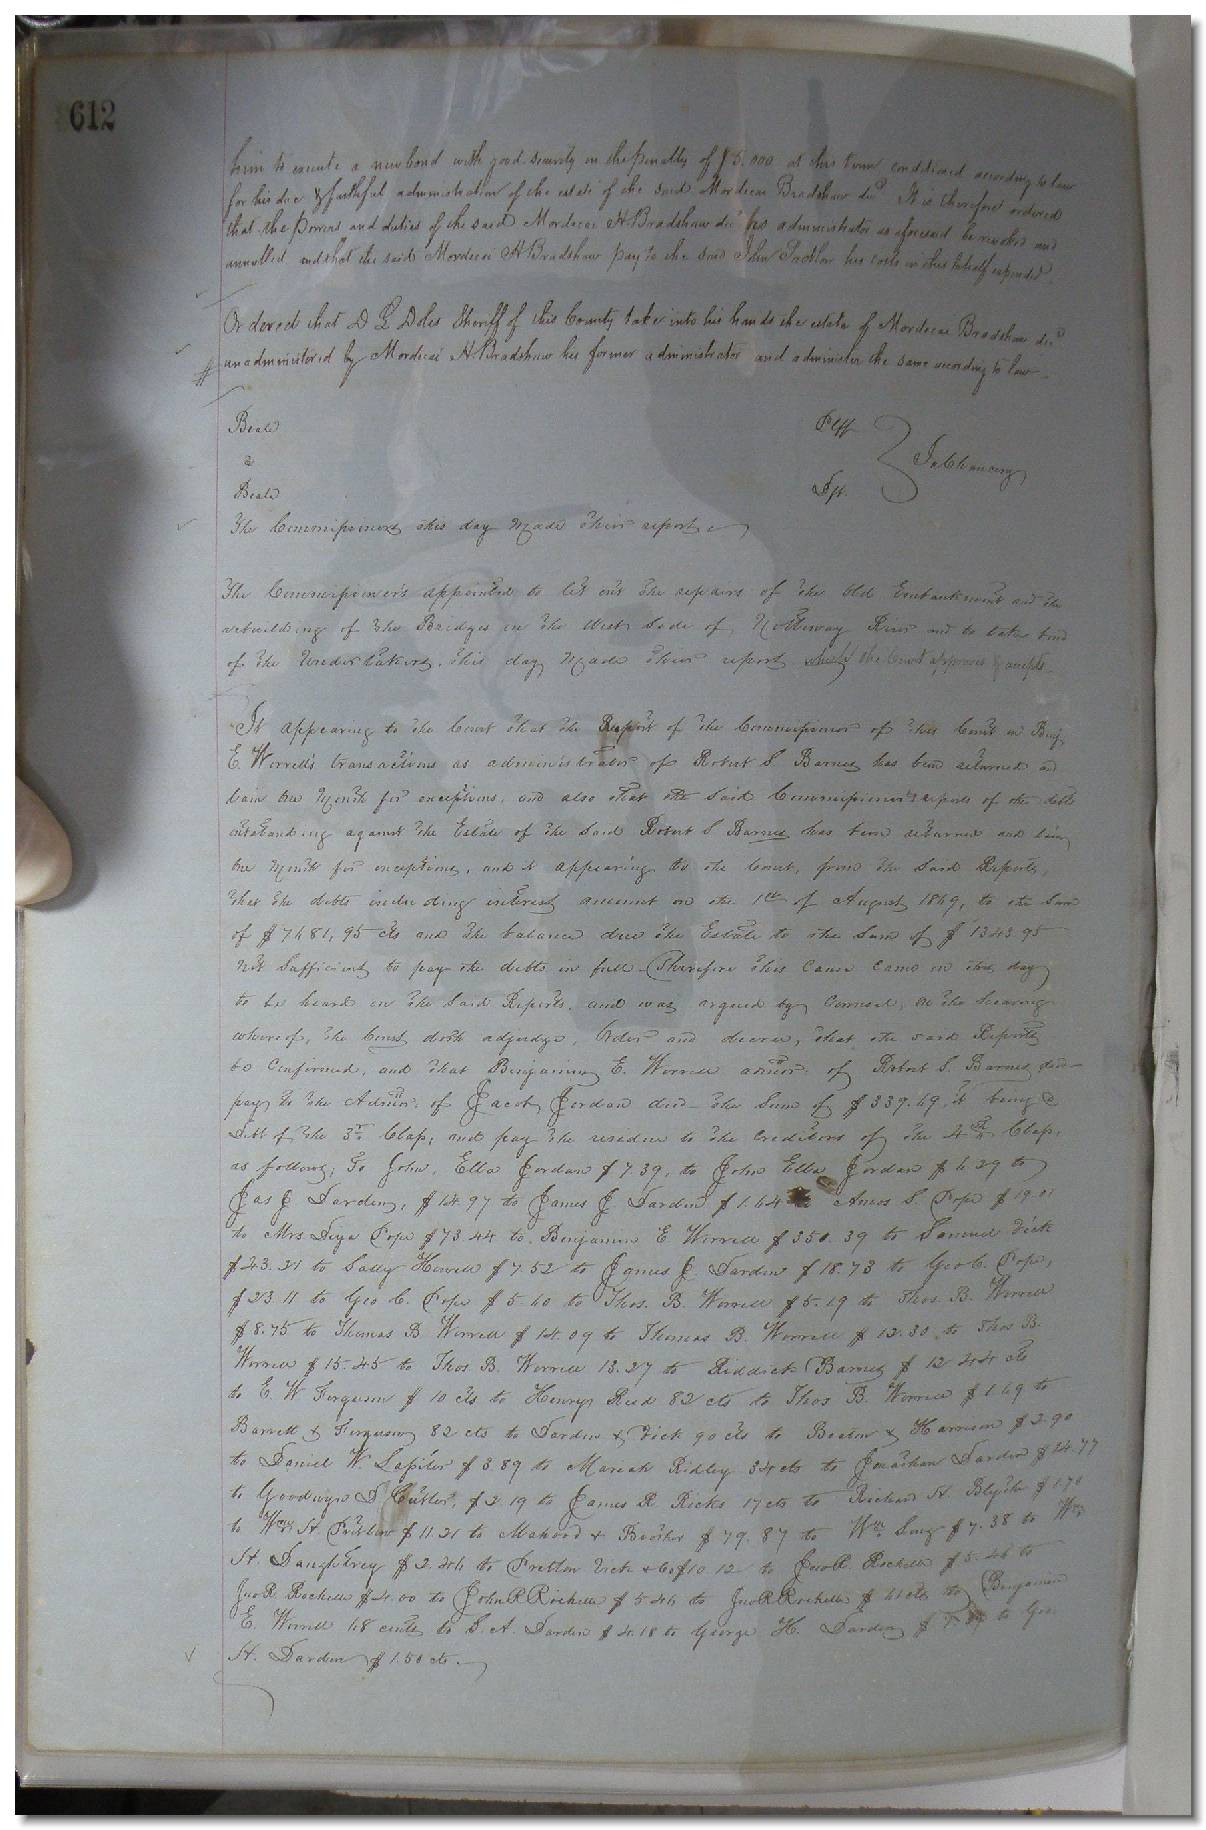 612
him to execute a new bond with good security in the penalty of $5.000 at this term conditioned according to law
for his due & faithful administration of the estate of the said Mordecai Bradshaw decd It is therefore ordered
that the Powers and duties of the said Mordecai H Bradshaw decd his administrator as aforesaid be revoked and
annulled and that the said Mordecai H Bradshaw pay to the said John his costs in this behalf expended
Ordered that D L Doles Sheriff of this County take into his hands the estate of Mordecai Bradshaw decd
# unadministered by Mordecai H Bradshaw his former administrator and administer the same according to law
Beale Plff
a In Chancery
Beale Dft.
The Commissioners this day made their report
The Commissioners appointed to let out the repairs of the Old Embankment and the
rebuilding of the Bridges on the West Side of Nottoway River and to take bond
of the Undertakers, this day made their report which the Court approves & accepts
It appearing to the Court that the Report of the Commissioner of this Court on Benj.
E. Worrell's transactions as administrator of Robert S Barnes has been returned and
lain one Month for exceptions, and also that the said Commissioner's reports of the debts
outstanding against the Estate of the said Robert S Barnes has been returned and lain
one Month for exceptions, and it appearing to the Court, from the said Reports,
that the debts including interest amount on the 1st of August 1869, to the Sum
of $7681,95 cts and the balance due the Estate to the Sum of $1343.95
not sufficient to pay the debts in full Therefore this cause came on this day
to be heard on the said Reports, and was argued by Counsel, On the hearing
whereof, the Court doth adjudge, Order and decree, that the said Reports
be Confirmed, and that Benjamin E. Worrell admor. of Robert S. Barnes decd
pay to the Admor. of Jacob Jordan decd the Sum of $339.69, it being a
debt of the 3rd Class, and pay the residue to the Creditors of the 4th Class,
as follows, To John, Ella Jordan $7.39, to John Ella Jordan $6.29 to
Jas J Darden, $14.97 to James J. Darden $1.64 Amos S. Pope $19.01
to Mrs Pope $73.44 to Benjamin E Worrell $350.39 to Samuel Vick
$43.21 to Sally Howell $7.52 to James J. Darden $18.73 to Geo C. Pope,
$23.11 to Geo C. Pope $5.60 to Thos. B. Worrell $5.69 to Thos. B. Worrell
$8.75 to Thomas B Worrell $14.09 to Thomas B. Worrell $12.30, to Thos B.
Worrell $15.45 to Thos. B. Worrell 13.27 to Riddick Barnes $12 44 cts
to E W Ferguson $10 cts to Henry Reed 82 cts to Thos B. Worrell $1.69 to
Barrett & Ferguson 82 cts to Darden & Vick 90 cts to Beaton & Harrison $2.90
to Daniel W. Lassiter $3.89 to Mariah Ridley 34 cts to Jonathan Darden $14.77
to Goodwyn D Cutler, $2.19 to James R Ricks 17 cts to Richard H. Blythe $1.71
to Wm H. Pretlow $11.21 to Mahood & Booker $79.87 to Wm $7.38 to Wm
H. Daughtrey $2.46 to Pretlow Vick & Co $10 12 to Jno R. Rochelle $5.46 to
Jno R Rochelle $4.00 to John R Rochelle $5.46 to Jno R Rochelle $ 61 cts to Benjamin
E. Worrell 68 cents to S. A. Darden $4.18 to George H. Darden to Geo.
H. Darden $1.50 cts.